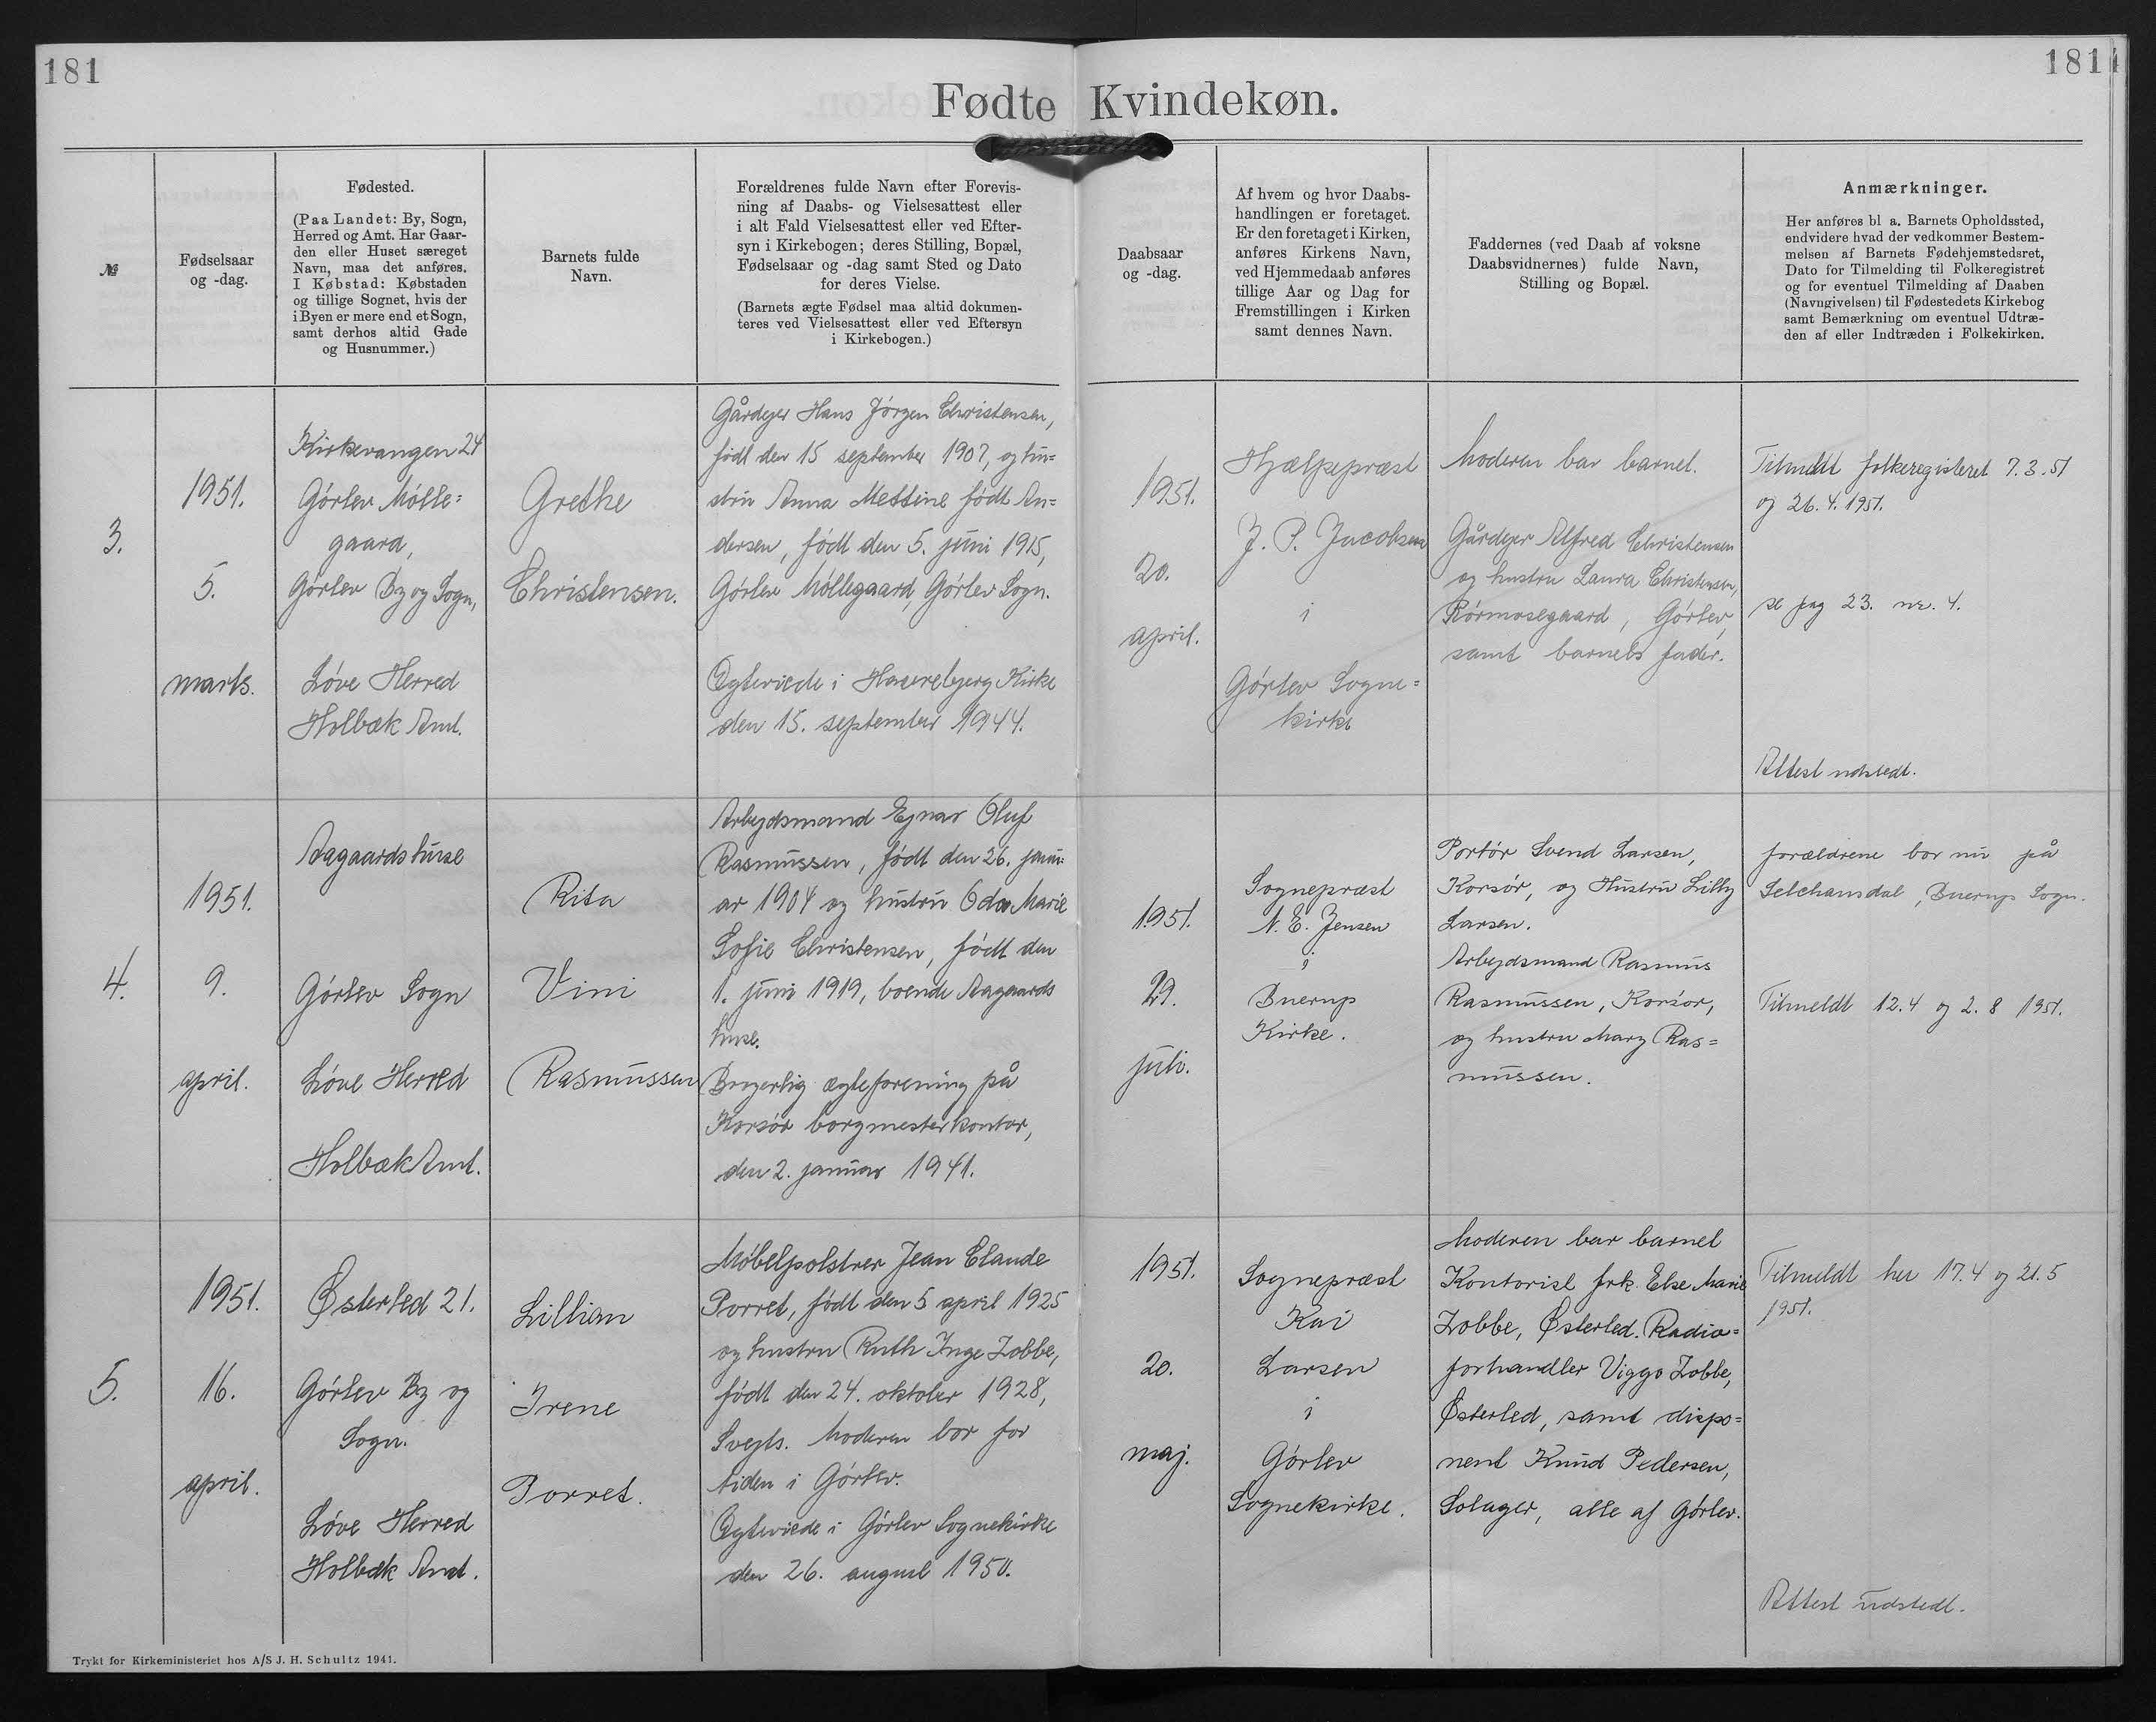 181
181
Fødte Kvindekøn.
№
Fødselsaar
og -dag.
Fødested.
(Paa Landet: By, Sogn,
Herred og Amt. Har Gaar-
den eller Huset særeget
Navn, maa det anføres.
I Købstad: Købstaden
og tillige Sognet, hvis der
i Byen er mere end et Sogn,
samt derhos altid Gade
og Husnummer.)
Barnets fulde
Navn.
Forældrenes fulde Navn efter Forevis-
ning af Daabs- og Vielsesattest eller
i alt Fald Vielsesattest eller ved Efter-
syn i Kirkebogen; deres Stilling, Bopæl,
Fødselsaar og -dag samt Sted og Dato
for deres Vielse.
(Barnets ægte Fødsel maa altid dokumen-
teres ved Vielsesattest eller ved Eftersyn
i Kirkebogen.)
Daabsaar
og -dag.
Af hvem og hvor Daabs-
handlingen er foretaget.
Er den foretaget i Kirken,
anføres Kirkens Navn,
ved Hjemmedaab anføres
tillige Aar og Dag for
Fremstillingen i Kirken
samt dennes Navn.
Faddernes (ved Daab af voksne
Daabsvidnernes) fulde Navn,
Stilling og Bopæl.
Anmærkninger.
Her anføres bl a. Barnets Opholdssted,
endvidere hvad der vedkommer Bestem-
melsen af Barnets Fødehjemstedsret,
Dato for Tilmelding til Folkeregistret
og for eventuel Tilmelding af Daaben
(Navngivelsen) til Fødestedets Kirkebog
samt Bemærkning om eventuel Udtræ-
den af eller Indtræden i Folkekirken.
3.
1951.
5.
marts.
Kirkevangen 24
Görlev Mölle=
gaard,
Görlev By og Sogn,
Løve Herred
Holbæk Amt.
Grethe
Christensen.
Gårdejer Hans Jörgen Christensen,
født den 15 september 1907, og hu-
stru Anna Mettine født An-
dersen, født den 5. juni 1915,
Görlev Möllegaard, Görlev Sogn.
Ægteviede i Havrebjerg Kirke
den 15. september 1944.
1951.
20.
april.
Hjælpepræst
J. P. Jacobsen
i
Görlev Sogne=
kirke
Moderen bar barnet.
Gårdejer Alfred Christensen
og hustru Laura Christensen,
Rörmosegaard, Görlev,
samt barnets fader.
Tilmeldt folkeregisteret 7.3.51
og 26.4.1951.
se pag 23. nr. 4.
Attest udstedt.
4.
1951.
9.
april.
Aagaardshuse
Görlev Sogn
Løve Herred
Holbæk Amt.
Rita
Vini
Rasmussen
Arbejdsmand Ejnar Oluf
Rasmussen, født den 26. janu-
ar 1904 og hustru Oda Marie
Sofie Christensen, født den
1. juni 1919, boende Aagaards
huse.
Borgerlig ægteforening på
Korsör borgmesterkontor,
den 2. januar 1941.
1951.
29.
juli.
Sognepræst
N. E. Jensen
i
Buerup
Kirke.
Portör Svend Larsen,
Korsör, og Hustru Lilly
Larsen.
Arbejdsmand Rasmus
Rasmussen, Korsör,
og hustru Mary Ras=
mussen.
forældrene bor nu på
Selchausdal, Buerup Sogn.
Tilmeldt 12.4 og 2.8 1951.
5.
1951.
16.
april.
Østerled 21.
Görlev By og
Sogn.
Løve Herred
Holbæk Amt.
Lillian
Irene
Porret.
Möbelpolstrer Jean Claude
Porret, født den 5 april 1925
og hustru Ruth Inge Lobbe,
født den 24. oktober 1928,
Svejts. Moderen bor for
tiden i Görlev.
Ægteviede i Görlev Sognekirke
den 26. august 1950.
1951.
20.
maj.
Sognepræst
Kai
Larsen
i
Görlev
Sognekirke.
Moderen bar barnet
Kontorist frk. Else Marie
Lobbe, Østerled. Radio=
forhandler Viggo Lobbe,
Østerled, samt dispo=
nent Knud Pedersen,
Solager, alle af Görlev.
Tilmeldt her 17.4 og 21.5
1951.
Attest udstedt.
Trykt for Kirkeministeriet hos A/S J. H. Schultz 1941.